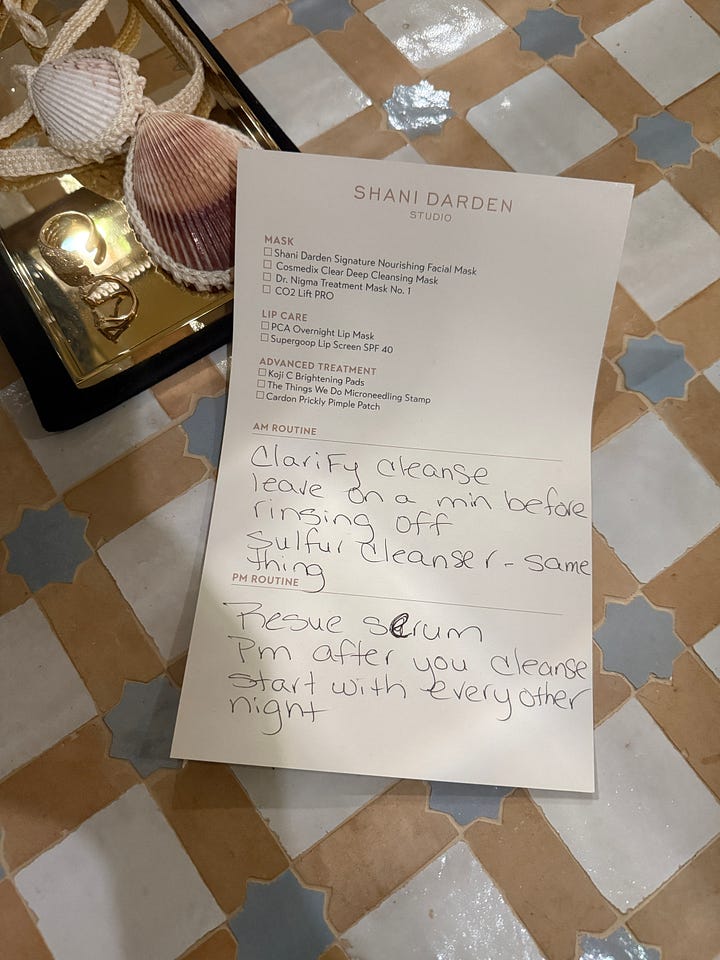 SHANI DARDEN
STUDIO
MASK
Shani Darden Signature Nourishing Facial Mask
Cosmedix Clear Deep Cleansing Mask
Dr. Nigma Treatment Mask No. 1
CO2 Lift PRO
LIP CARE
PCA Overnight Lip Mask
Supergoop Lip Screen SPF 40
ADVANCED TREATMENT
Koji C Brightening Pads
The Things We Do Microneedling Stamp
Cardon Prickly Pimple Patch
AM ROUTINE
Clarify cleanse
leave on a min before
rinsing off
Sulfur cleanser - same
thing
PM ROUTINE
Resue serum
Pm after you cleanse
start with every other
night